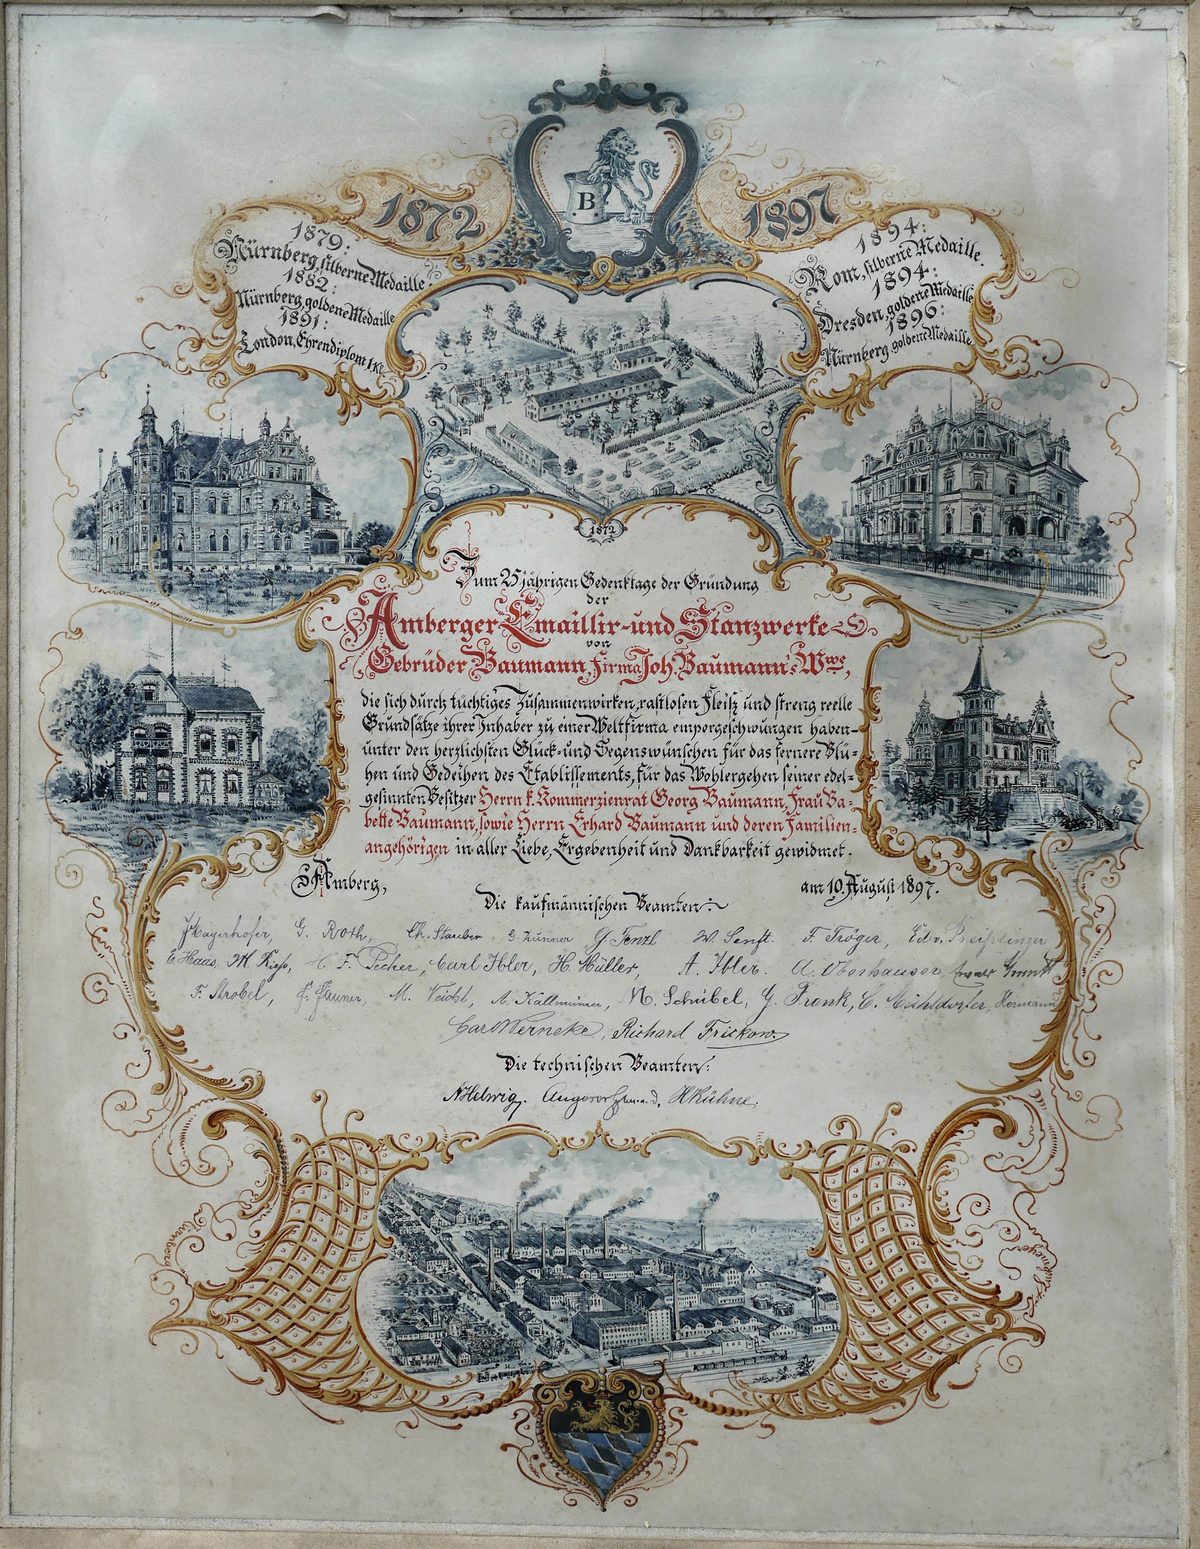 B
1872
1897
1879:
Nürnberg, silberne Medaille.
1882:
Nürnberg, goldene Medaille
1891:
London, Ehrendiplom I. Kl.
1894:
Rom, silberne Medaille.
1894:
Dresden, goldene Medaille
1896:
Nürnberg goldene Medaille.
1872
Zum 25 jährigen Gedenktage der Gründung
der
Amberger Emaillir- und Stanzwerke
von
Gebrüder Baumann, Firma Joh. Baumann's Wwe,
die sich durch tüchtiges Zusammenwirken, rastlosen Fleiß und streng reelle
Grundsätze ihrer Inhaber zu einer Weltfirma emporgeschwungen haben-
unter den herzlichsten Glück- und Segenswünschen für das fernere Blü-
hen und Gedeihen des Etablissements, für das Wohlergehen seiner edel-
gesinnten Besitzer Herrn k. Kommerzienrat Georg Baumann, Frau Ba-
bette Baumann, sowie Herrn Erhard Baumann und deren Familien-
angehörigen in aller Liebe, Ergebenheit und Dankbarkeit gewidmet.
Amberg, am 19. August 1897.
Die kaufmännischen Beamten:
Mayerhofer, G. Roth, Ch. Stauber G. Zunner G Tenzl W. Senft. F. Tröger,
E Haas, M. Kieß, H. F. Pecher, Carl Ibler, H. Müller, A. Ibler. A. Oberhauser,
F. Strobel, M. A. Kallmünzer, M. Schübel, G. Tronk, C. Hermann
Carl Werneke, Richard Frickow.
Die technischen Beamten:
N Helwig. H Kühne.
Nürnberg